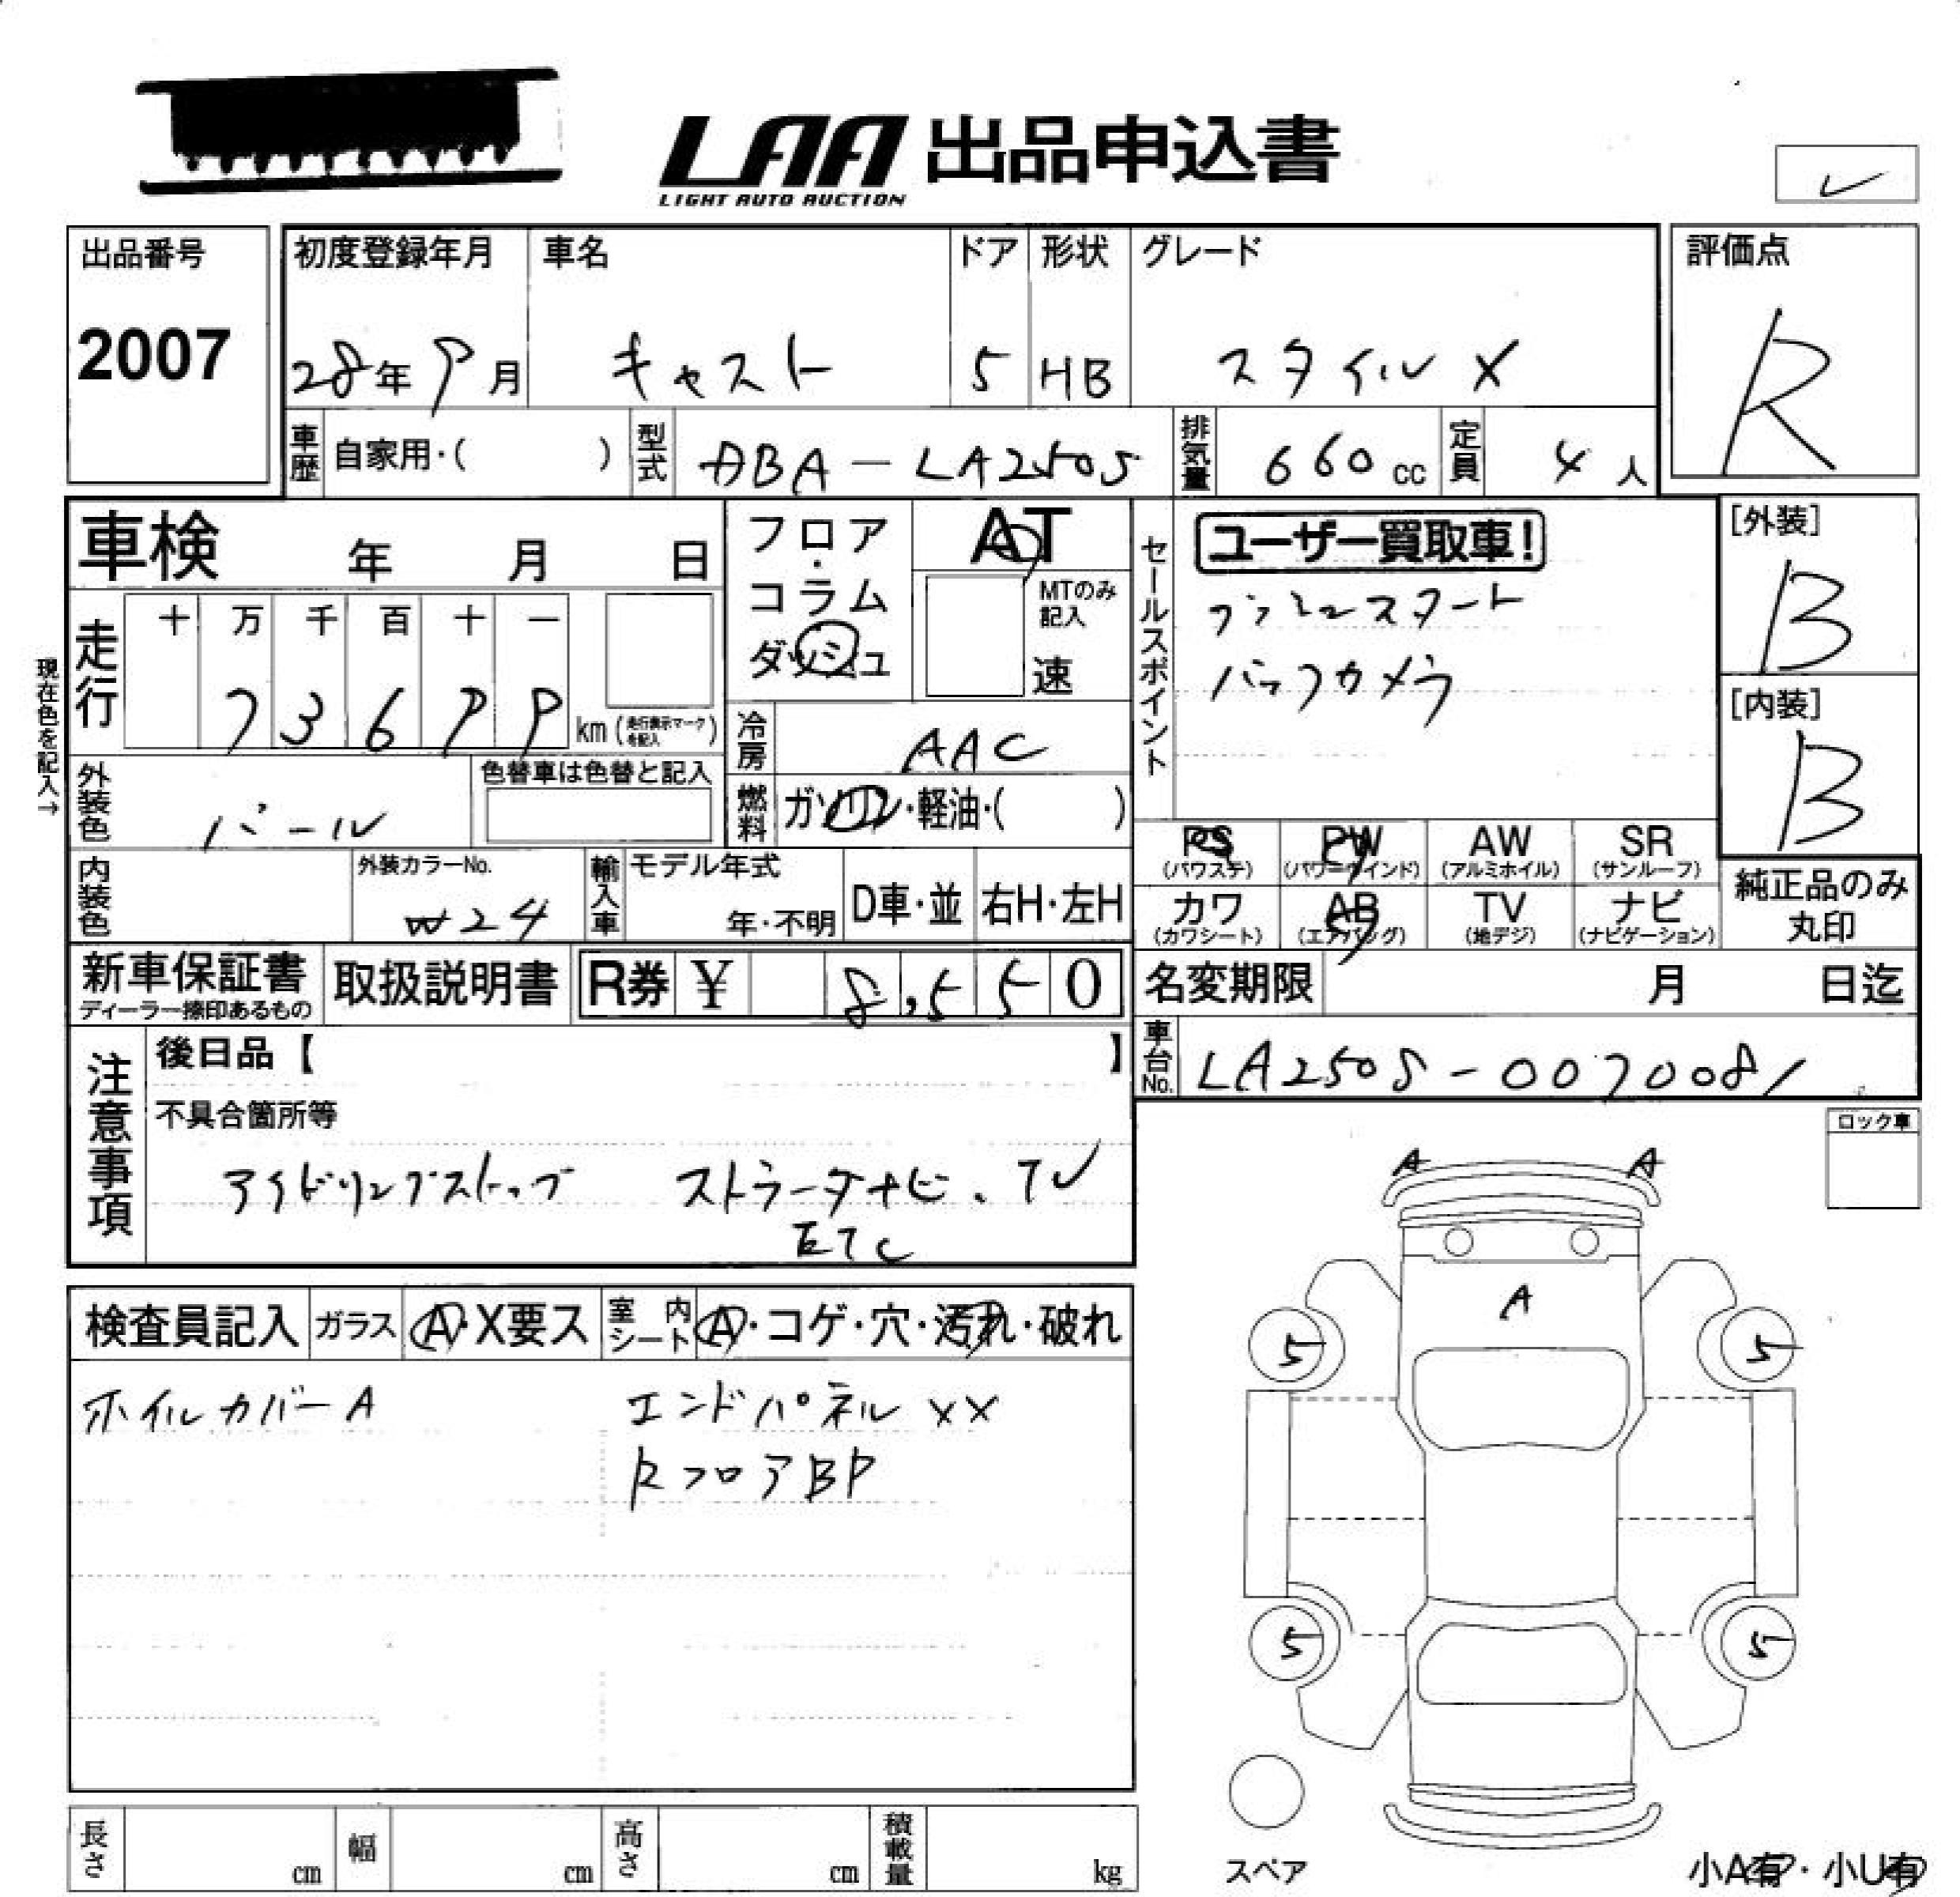 LAA 出品申込書
LIGHT AUTO AUCTION
出品番号
2007
初度登録年月 車名 ドア 形状 グレード
28年9月 キャスト 5 HB スタイルX
評価点
R
車歴 自家用・( ) 型式 DBA-LA250S 排気量 660cc 定員 4人
車検 年 月 日
フロア・コラム ダッシュ
AT
MTのみ記入
速
セールスポイント
ユーザー買取車!
プッシュスタート
バックカメラ
[外装]
B
[内装]
B
現在色を記入→
走行 十 万 千 百 十 一
73699 km (走行表示マークを記入)
冷房 AAC
外装色 パール 色替車は色替と記入
燃料 ガソリン・軽油・( )
PS (パワステ) PW (パワーウインド) AW (アルミホイル) SR (サンルーフ)
カワ (カワシート) AB (エアバッグ) TV (地デジ) ナビ (ナビゲーション)
純正品のみ丸印
内装色 外装カラーNo. W24 輸入車 モデル年式 年・不明 D車・並 右H・左H
新車保証書 ディーラー捺印あるもの 取扱説明書 R券 ¥ 8,550
名変期限 月 日迄
車台No. LA250S-0070081
注意事項
後日品【 】
不具合箇所等
アイドリングストップ ストラーダナビ、TV
ETC
ロック車
A A
A
5 5
5 5
検査員記入 ガラス A・X要ス 室内シート A・コゲ・穴・汚れ・破れ
ホイルカバーA エンドパネルXX
RフロアBP
長さ cm 幅 cm 高さ cm 積載量 kg
スペア
小A有・小U有